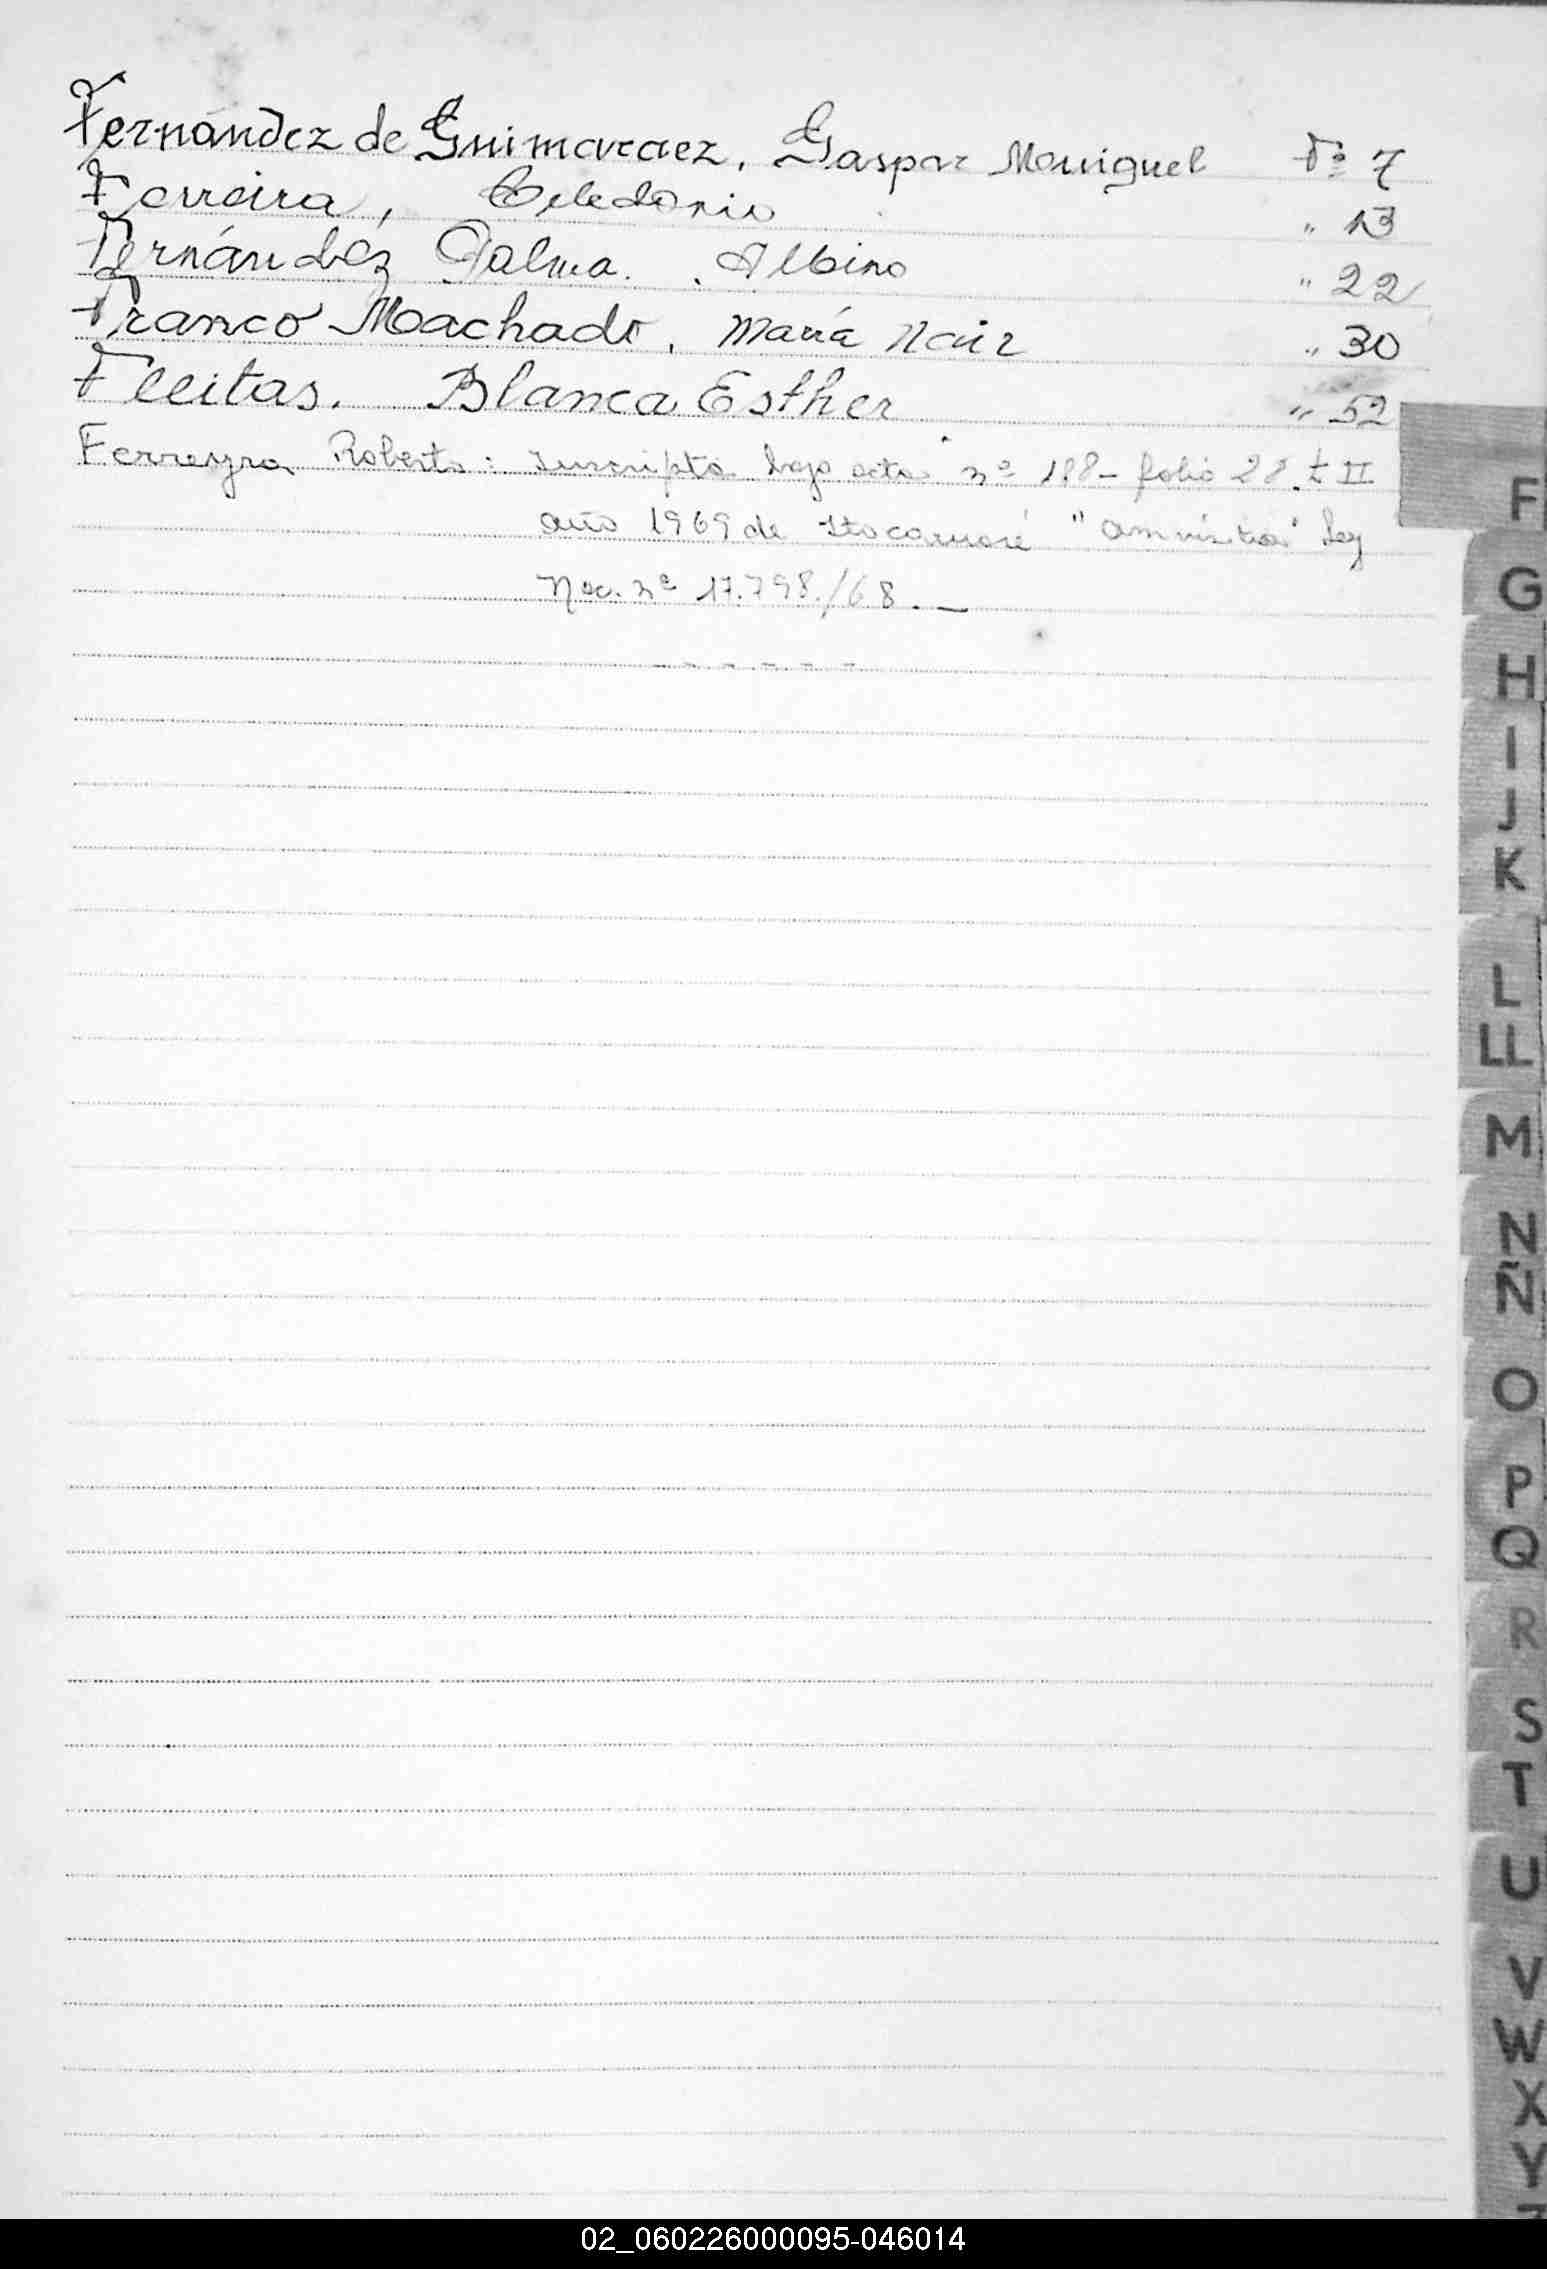 Fernández de Guimaraez, Gaspar Mouiguel Fº 7
Ferreira, Celedonio " 13
Fernández Palma. Albino " 22
Franco Machado, María Nair " 30
Fleitas. Blanca Esther " 52
Ferreyra Roberto: Inscripto bajo acta nº 188- folio 28. t II
año 1969 de Itacaruaré "amnistia" Ley
Nac. nº 17.798./68._
F
G
H
I
J
K
L
LL
M
N
Ñ
O
P
Q
R
S
T
U
V
W
X
Y
02_060226000095-046014